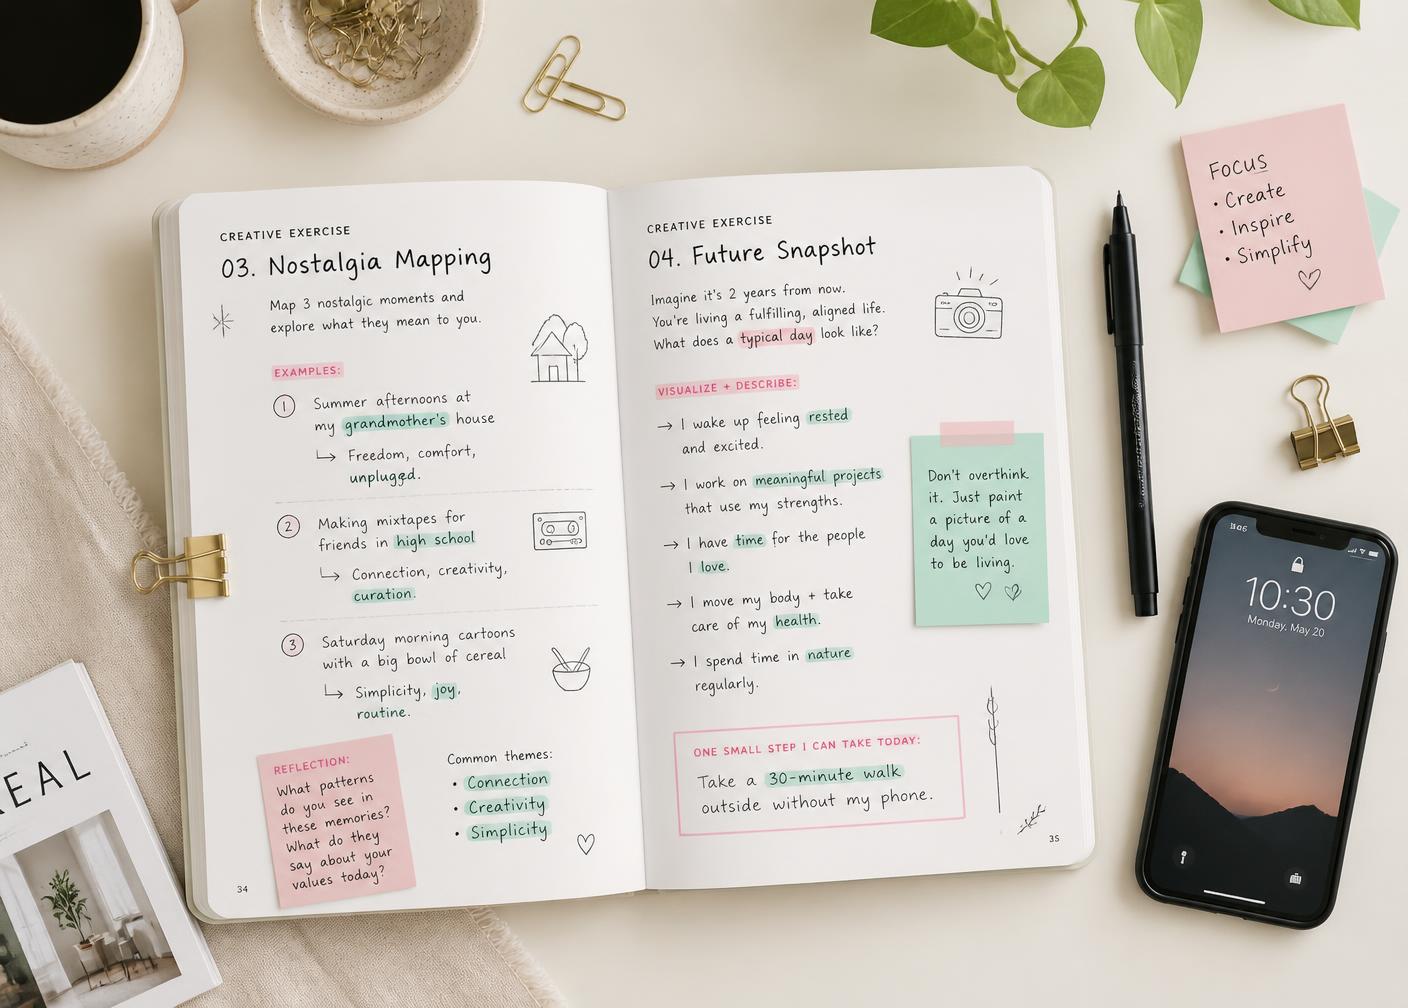 CREATIVE EXERCISE
03. Nostalgia Mapping
Map 3 nostalgic moments and
explore what they mean to you.
EXAMPLES:
1 Summer afternoons at
my grandmother's house
↳ Freedom, comfort,
unplugged.
2 Making mixtapes for
friends in high school
↳ Connection, creativity,
curation.
3 Saturday morning cartoons
with a big bowl of cereal
↳ Simplicity, joy,
routine.
REFLECTION:
What patterns
do you see in
these memories?
What do they
say about your
values today?
Common themes:
• Connection
• Creativity
• Simplicity
34
CREATIVE EXERCISE
04. Future Snapshot
Imagine it's 2 years from now.
You're living a fulfilling, aligned life.
What does a typical day look like?
VISUALIZE + DESCRIBE:
→ I wake up feeling rested
and excited.
→ I work on meaningful projects
that use my strengths.
→ I have time for the people
I love.
→ I move my body + take
care of my health.
→ I spend time in nature
regularly.
Don't overthink
it. Just paint
a picture of a
day you'd love
to be living.
ONE SMALL STEP I CAN TAKE TODAY:
Take a 30-minute walk
outside without my phone.
35
FOCUS
• Create
• Inspire
• Simplify
10:30
Monday, May 20
EAL